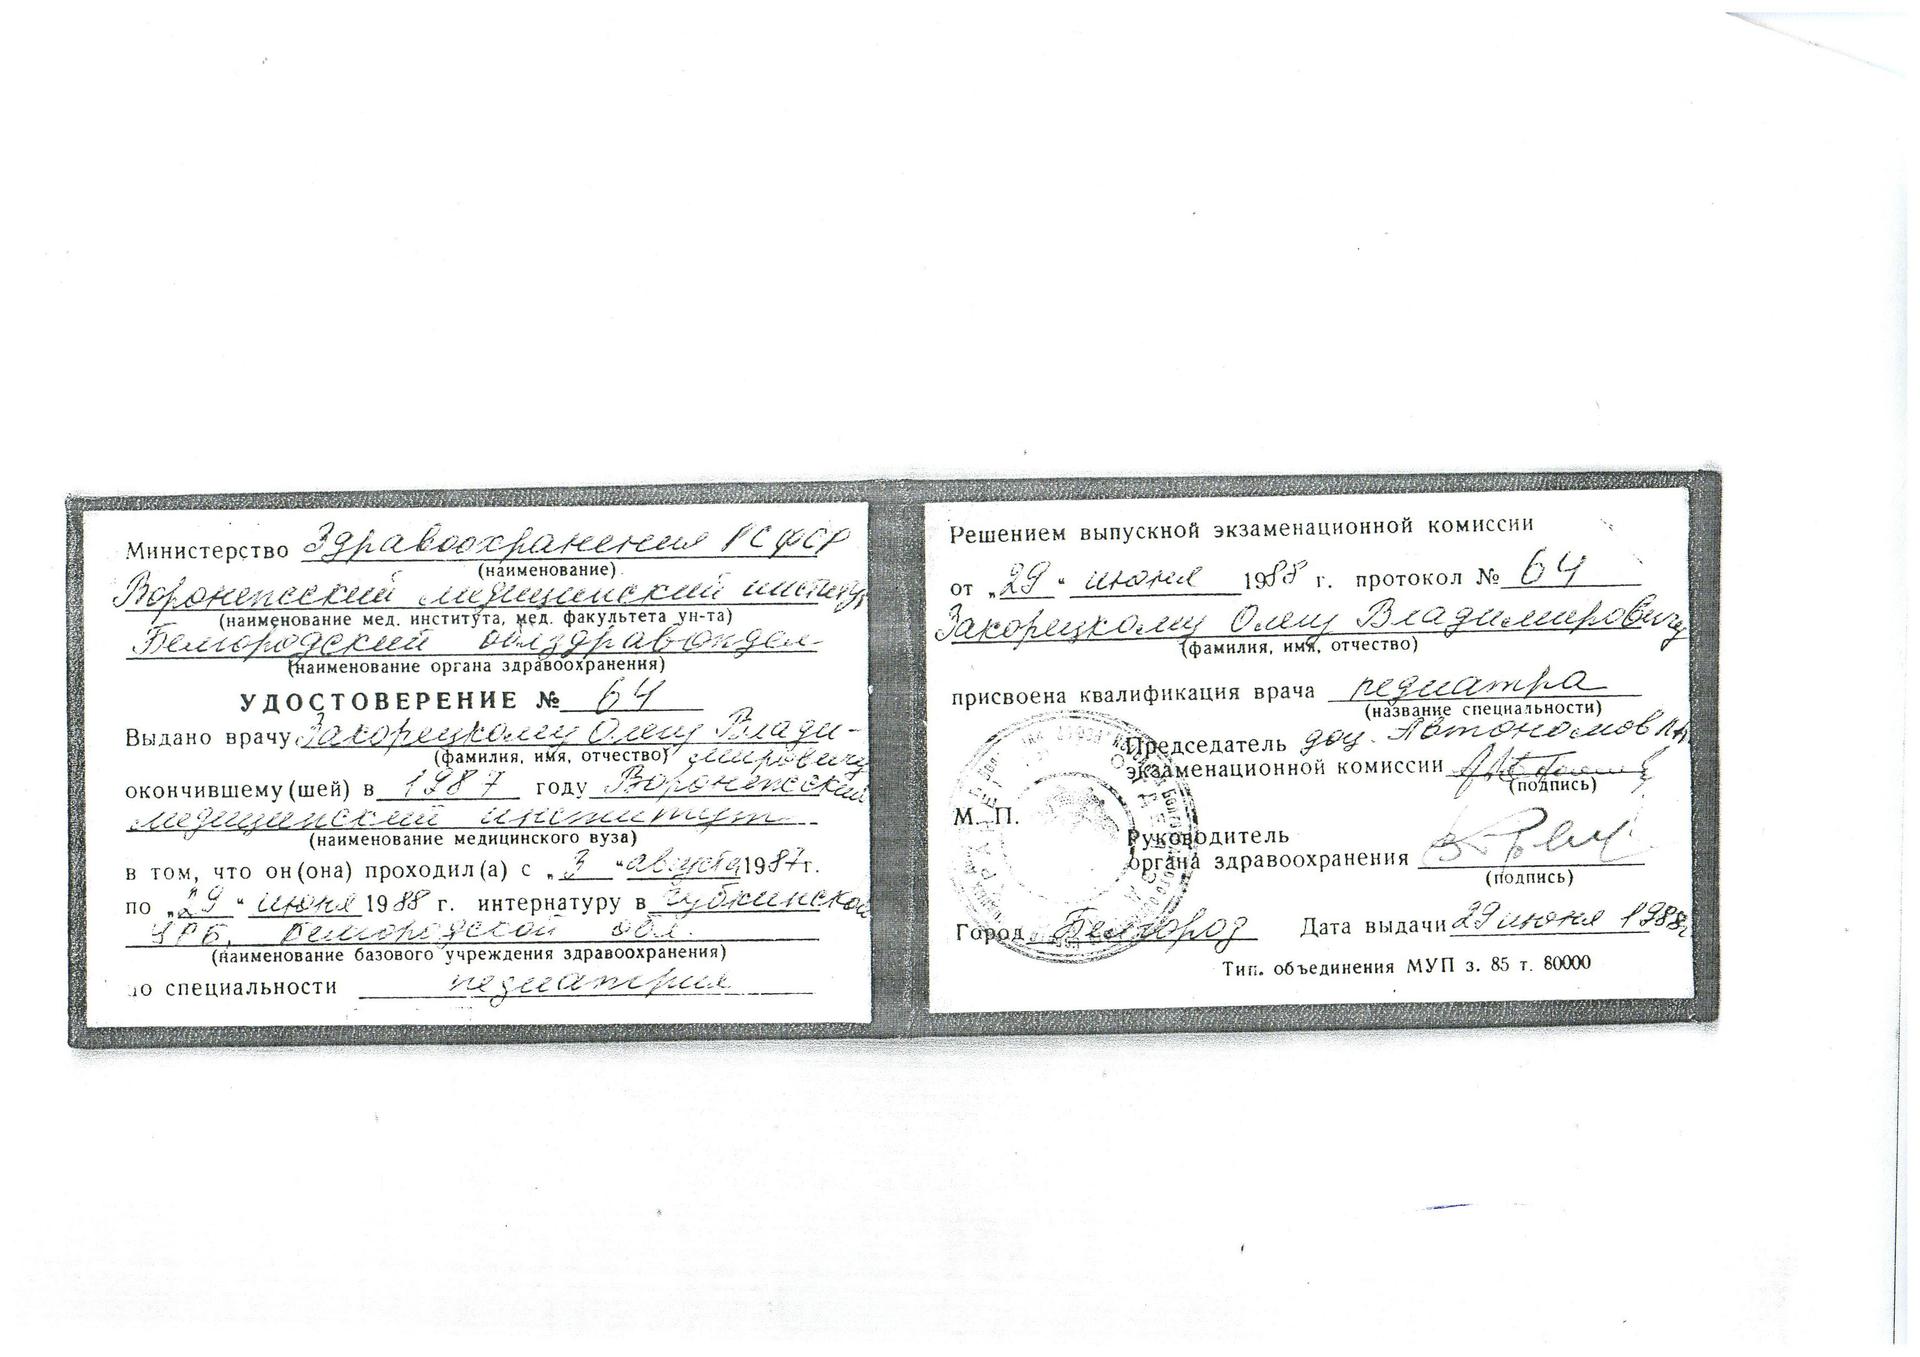 Министерство Здравоохранения РСФСР
(наименование)
Воронежский медицинский институт
(наименование мед. института, мед. факультета ун-та)
Белгородский облздравотдел
(наименование органа здравоохранения)
УДОСТОВЕРЕНИЕ № 64
Выдано врачу Закорецкому Олегу Влади-
(фамилия, имя, отчество) мировичу
окончившему(шей) в 1987 году Воронежский
медицинский институт
(наименование медицинского вуза)
в том, что он(она) проходил(а) с „3 “ августа 1987 г.
по „29 “ июня 1988 г. интернатуру в Губкинской
ЦРБ, Белгородской обл.
(наименование базового учреждения здравоохранения)
по специальности педиатрия
Решением выпускной экзаменационной комиссии
от „29 “ июня 1988 г. протокол № 64
Закорецкому Олегу Владимировичу
(фамилия, имя, отчество)
присвоена квалификация врача педиатра
(название специальности)
Председатель доц. Автономов
экзаменационной комиссии
(подпись)
М. П.
Руководитель
органа здравоохранения
(подпись)
Город Белгород Дата выдачи 29 июня 1988г.
Тип. объединения МУП з. 85 т. 80000